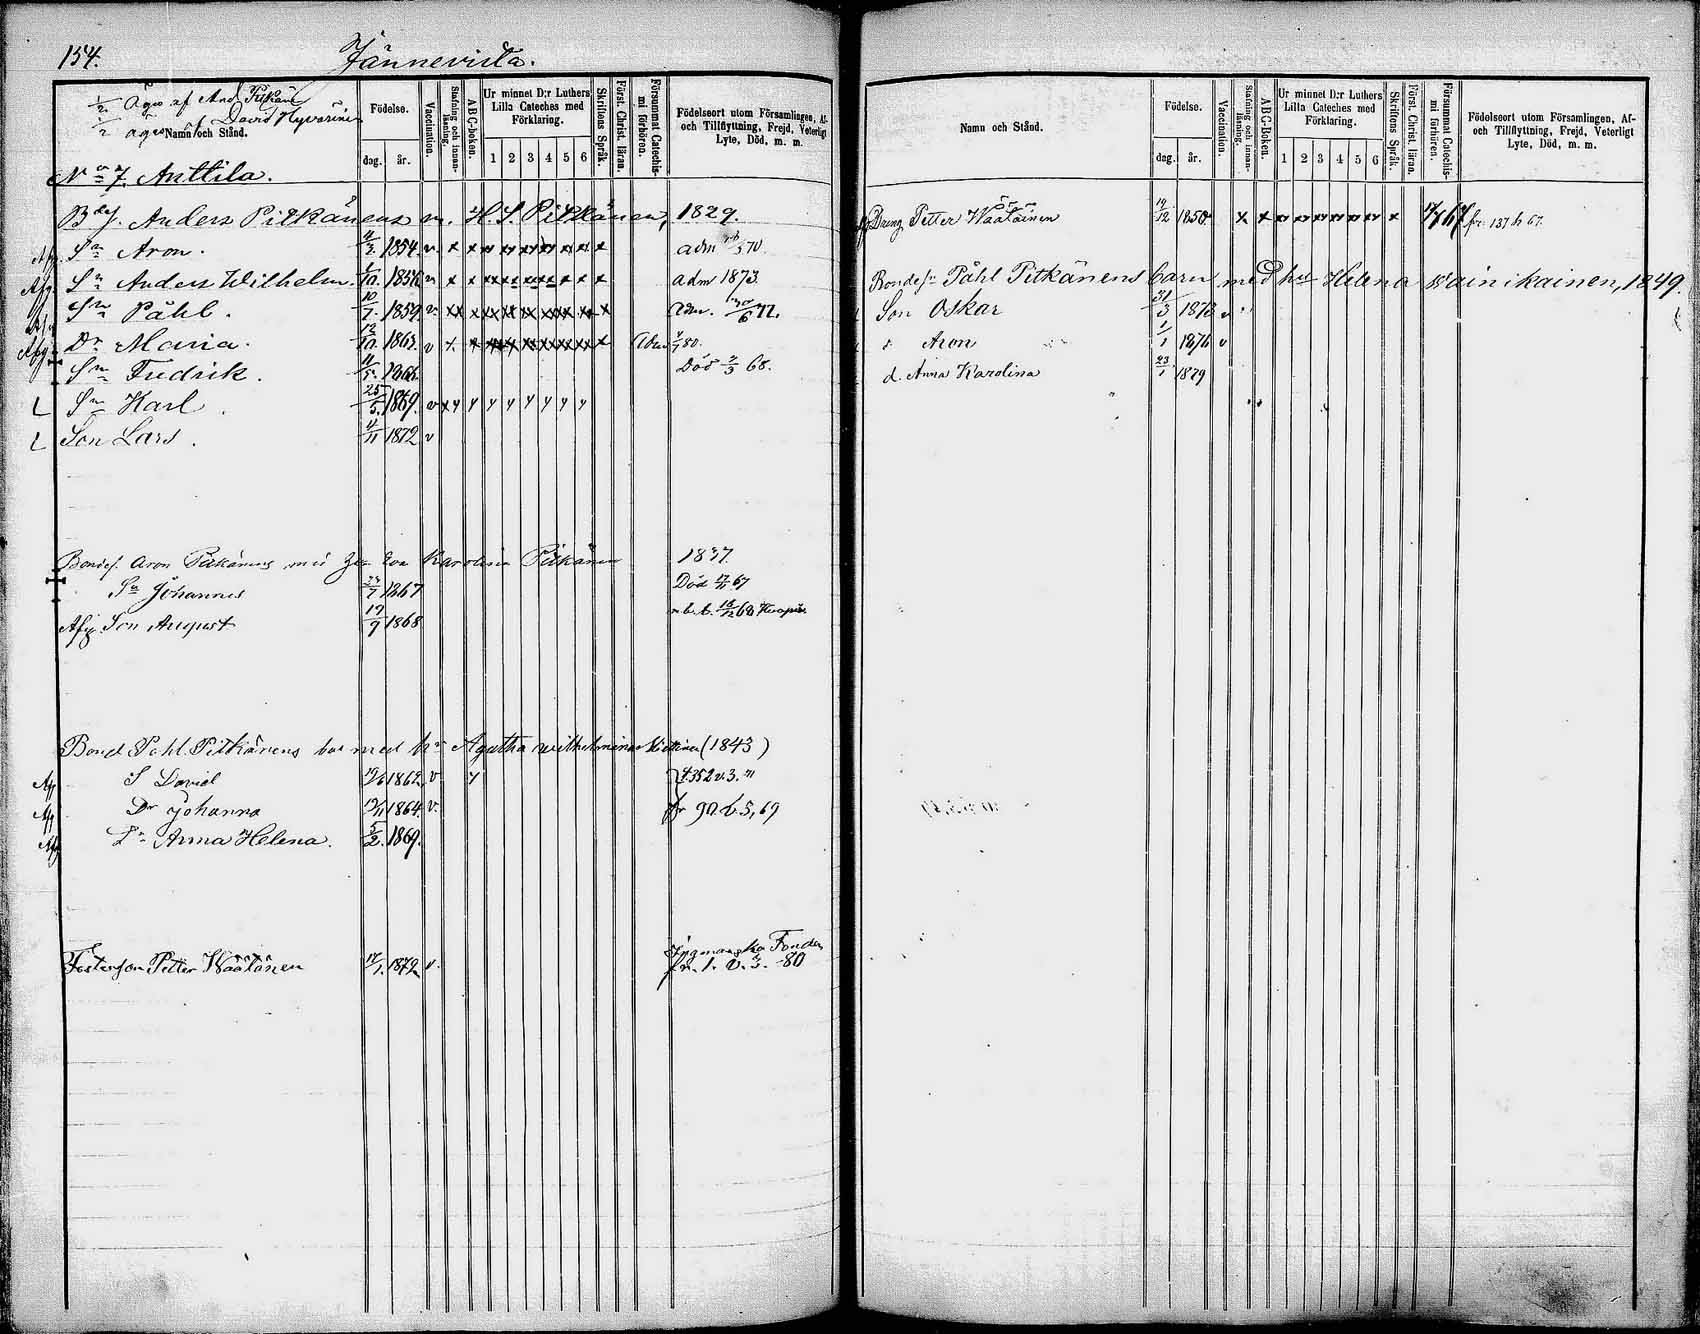 154. Jännevirta.
1/2 äges af And. Pitkän
1/2 äges af David Hyvärinen
Namn och Stånd.
Födelse.
dag. år.
Vaccination.
Stafning och innanläsning.
ABC-Boken.
Ur minnet D:r Luthers Lilla Cateches med Förklaring.
1 2 3 4 5 6
Skriftens Språk.
Först. Christ. läran.
Försummat Catechismi förhören.
Födelseort utom Församlingen, Af- och Tillflyttning, Frejd, Veterligt Lyte, Död, m. m.
No 7. Anttila.
Bdef. Anders Pitkänens m. H. S. Pitkänen, 1829.
Afg. Sn Aron. 1854. v x x adm 70
Afg. Sn Anders Wilhelm. 1856 v x x adm 1873.
Afg. Sn Påhl. 10/7 1859 v. xx adm. /6 77.
Afg. Dr Maria. 12/10 1863. v x. adm 80.
Sn Fredrik. 11/5 1866. Död 68.
L Sn Karl. 25/5 1869. v x y y y y y y y y
L Son Lars. 4/11 1872 v
Bondes. Aron Pitkänens, med Eva Karolina Pitkänen 1837.
Sn Johannes 1867 Död 67
Afg. Son August 19/9 1868 m. b. 68 Kuopio
Bond Pahl Pitkänens bar med hu Agatha wilhelmina (1843)
Afg S David 1862. v. y f. 352 v. 3.
Afg Dr Johanna 1864. v. fr 90. v. 5, 69
Afg Dr Anna Helena. 5/2. 1869.
Fonden
Fosterson Petter Wäätänen 1872 v. fr. 1. v. 3. -80
Namn och Stånd.
Födelse.
dag. år.
Vaccination.
Stafning och innanläsning.
ABC-Boken.
Ur minnet D:r Luthers Lilla Cateches med Förklaring.
1 2 3 4 5 6
Skriftens Språk.
Först. Christ. läran.
Försummat Catechismi förhören.
Födelseort utom Församlingen, Af- och Tillflyttning, Frejd, Veterligt Lyte, Död, m. m.
Dreng Petter Wäätäinen 19/12 1850 x x x 67 fr. 137 h 67.
Bondes. Påhl Pitkänens barn med hu Helena wainikainen, 1849.
Son Oskar 31/3 1873 v
s. Aron 1/1 1876 v
d. Anna Karolina 23/1 1879